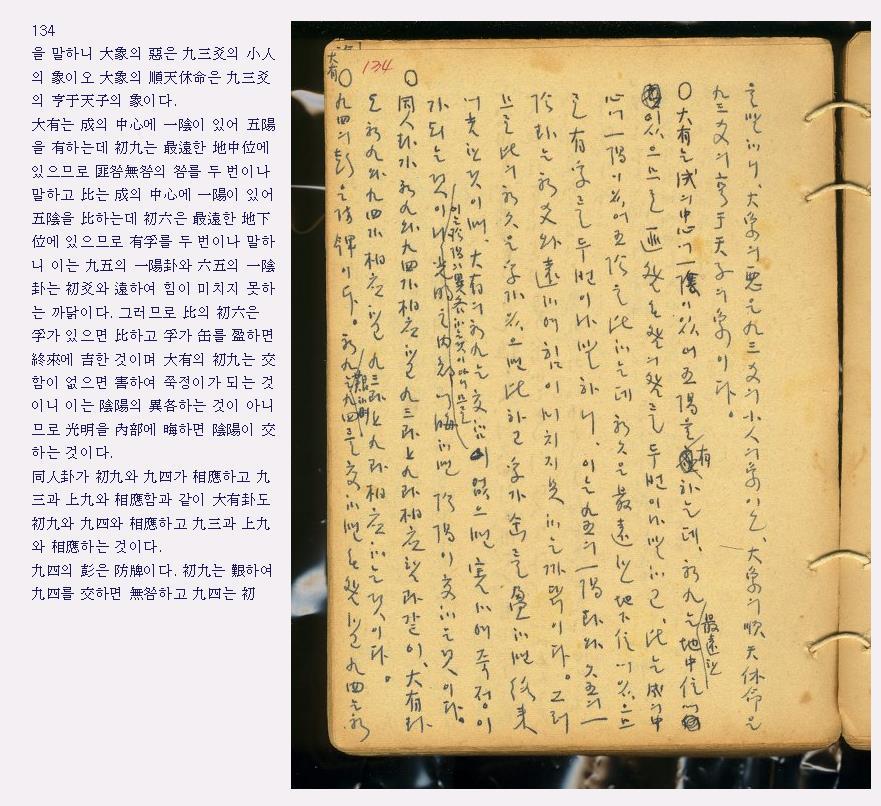 134
을 말하니 大象의 惡은 九三爻의 小人
의 象이오 大象의 順天休命은 九三爻
의 亨于天子의 象이다.
大有는 成의 中心에 一陰이 있어 五陽
을 有하는데 初九는 最遠한 地中位에
있으므로 匪咎無咎의 咎를 두 번이나
말하고 比는 成의 中心에 一陽이 있어
五陰을 比하는데 初六은 最遠한 地下
位에 있으므로 有孚를 두 번이나 말하
니 이는 九五의 一陽卦와 六五의 一陰
卦는 初爻와 遠하여 힘이 미치지 못하
는 까닭이다. 그러므로 比의 初六은
孚가 있으면 比하고 孚가 缶를 盈하면
終來에 吉한 것이며 大有의 初九는 交
함이 없으면 害하여 쭉정이가 되는 것
이니 이는 陰陽의 異各하는 것이 아니
므로 光明을 內部에 晦하면 陰陽이 交
하는 것이다.
同人卦가 初九와 九四가 相應하고 九
三과 上九와 相應함과 같이 大有卦도
初九와 九四와 相應하고 九三과 上九
와 相應하는 것이다.
九四의 彭은 防牌이다. 初九는 艱하여
九四를 交하면 無咎하고 九四는 初
134
大有
을 말하니, 大象의 惡은 九三爻의 小人의 象이오, 大象의 順天休命은
九三爻의 亨于天子의 象이다.
大有는 成의 中心에 一陰이 있어 五陽을 有하는데, 初九는 最遠한 地中位에
있으므로 匪咎無咎의 咎를 두번이나 말하고, 比는 成의 中
心에 一陽이 있어 五陰을 比하는데 初六은 最遠한 地下位에 있으므
로 有孚를 두번이나 말하니, 이는 九五의 一陽卦와 六五의 一
陰卦는 初爻와 遠하여 힘이 미치지 못하는 까닭이다. 그러
므로 比의 初六은 孚가 있으면 比하고 孚가 缶를 盈하면 終來
에 吉한 것이며, 大有의 初九는 交함이 없으면 害하여 쭉정이
가 되는 것이니 이는 陰陽의 異各하는 것이 아니므로 光明을 內部에 晦하면 陰陽이 交하는 것이다.
同人卦가 初九와 九四가 相應하고 九三과 上九와 相應함과 같이, 大有卦
도 初九와 九四와 相應하고 九三과 上九와 相應하는 것이다.
九四의 彭은 防牌이다. 初九는 艱하여 九四를 交하면 無咎하고 九四는 初